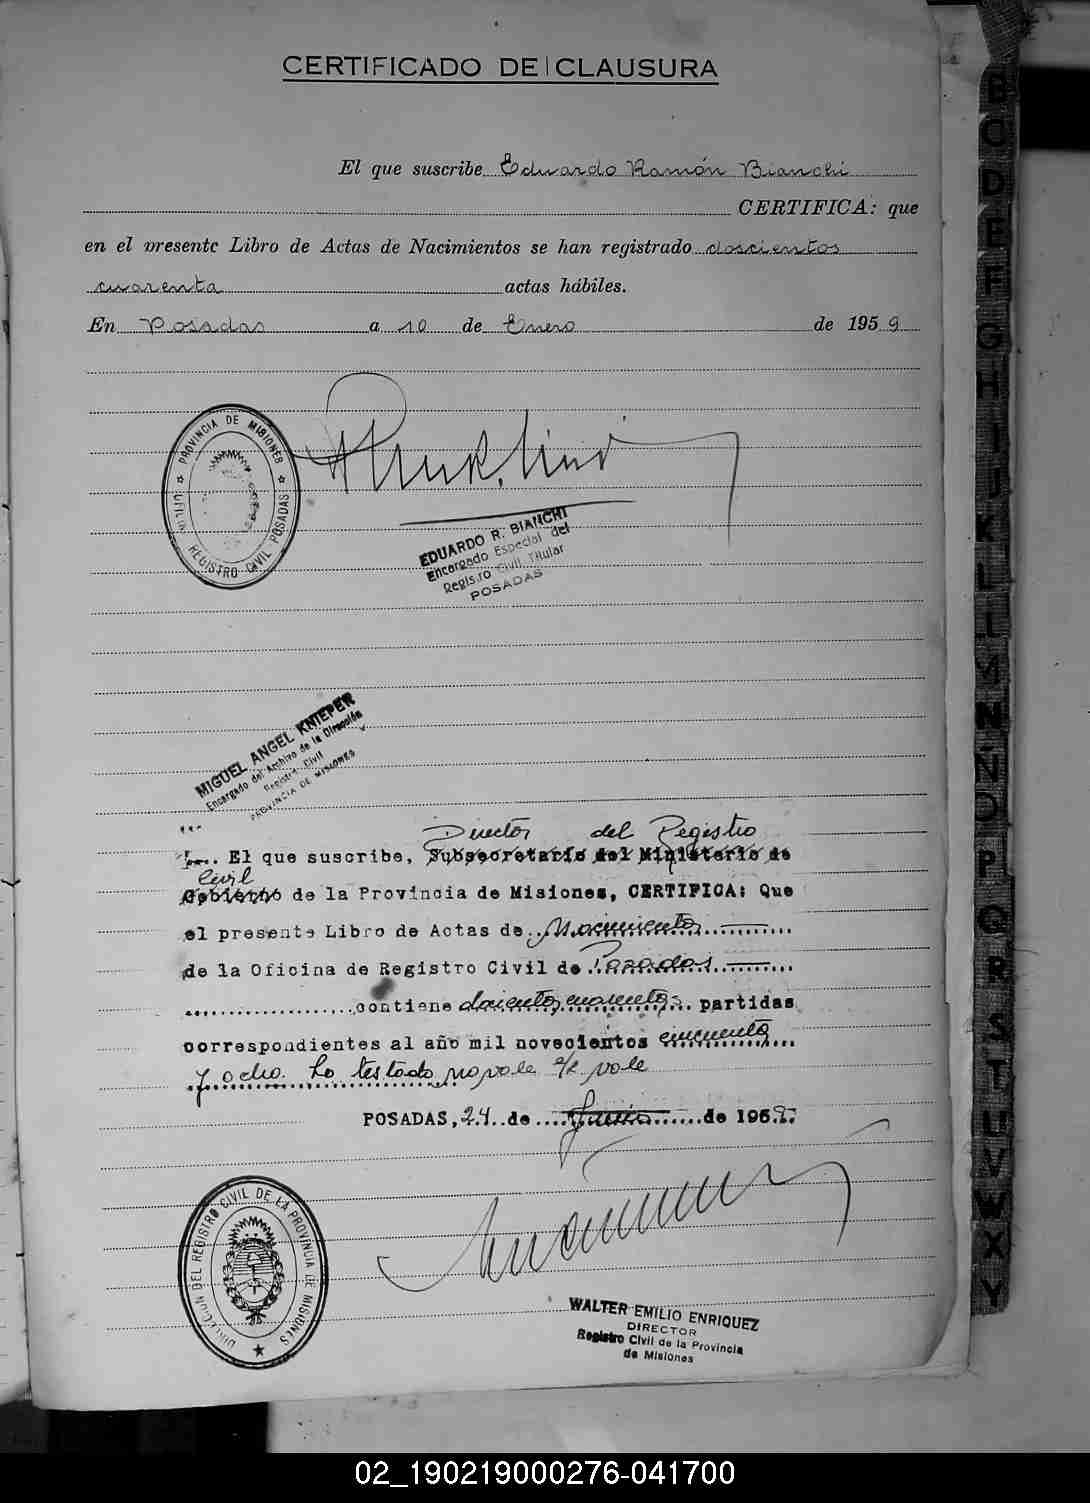 CERTIFICADO DE CLAUSURA
El que suscribe Eduardo Ramón Bianchi
CERTIFICA: que
en el presente Libro de Actas de Nacimientos se han registrado doscientos
cuarenta actas hábiles.
En Posadas a 10 de Enero de 1959
PROVINCIA DE MISIONES
OFICINA REGISTRO CIVIL POSADAS
EDUARDO R. BIANCHI
Encargado Especial del
Registro Civil Titular
POSADAS
MIGUEL ANGEL KNIEPER
Encargado del Archivo de la Dirección
Registro Civil
PROVINCIA DE MISIONES
Director del Registro
El que suscribe, Subsecretario del Ministerio de
Civil
Gobierno de la Provincia de Misiones, CERTIFICA: Que
el presente Libro de Actas de Nacimientos
de la Oficina de Registro Civil de Posadas
contiene partidas
correspondientes al año mil novecientos cincuenta
y ocho. Lo testado no vale e/l vale
POSADAS, 24 de Junio de 1959
DIRECCION DEL REGISTRO CIVIL DE LA PROVINCIA DE MISIONES
WALTER EMILIO ENRIQUEZ
DIRECTOR
Registro Civil de la Provincia
de Misiones
B
C
D
E
F
G
H
I
J
K
L
LL
M
N
Ñ
O
P
Q
R
S
T
U
V
W
X
Y
02_190219000276-041700